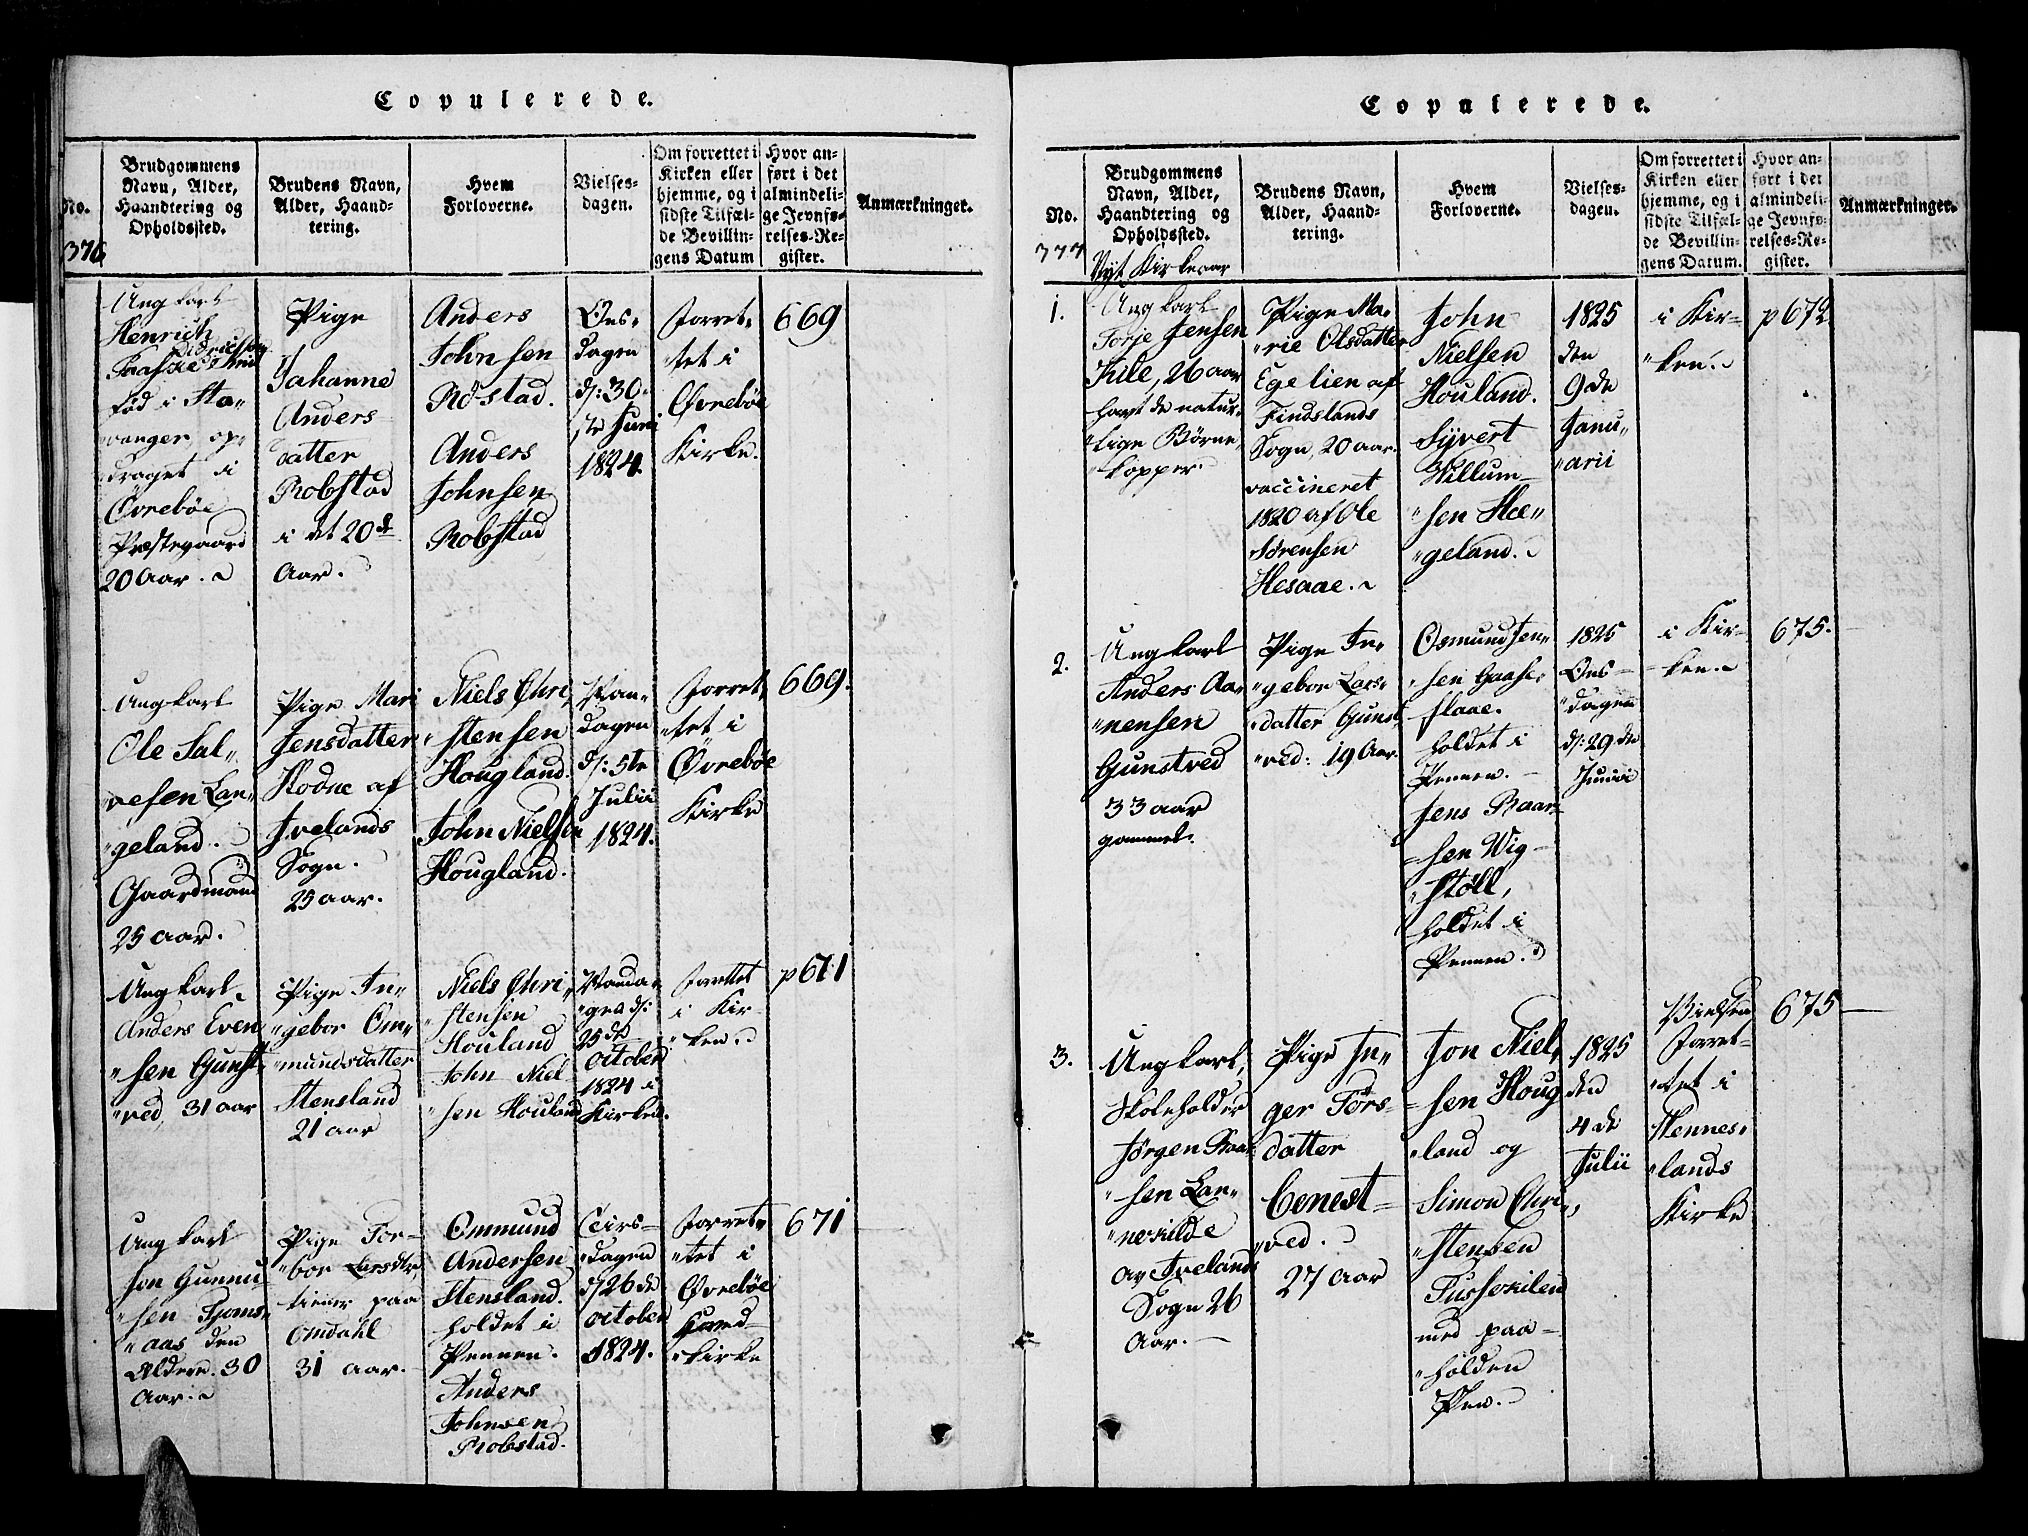 Copulerede.
No.
376
Brudgommens
Navn, Alder,
Haandtering og
Opholdssted.
Brudens Navn,
Alder, Haand-
tering.
Hvem
Forloverne.
Vielses-
dagen.
Om forrettet i
Kirken eller
hjemme, og i
sidste Tilfæl-
de Bevillin-
gens Datum
Hvor an-
ført i det
almindeli-
ge Jevnfø-
relses-Re-
gister.
Anmærkninger.
Ungkarl
Henrich
Didricksen
født i Sta-
vanger, op-
draget i
Øvrebøe
Præstegaard
20 Aar.
Pige
Johanne
Anders
datter
Robstad
i det 20de
Aar.
Anders
Johnsen
Røstad.
Anders
Johnsen
Robstad
Ons-
dagen
d: 30
te Juni
1824.
Forret-
tet i
Øvrebøe
Kirke.
669
Ungkarl
Ole Sal-
vesen Lan-
geland.
Gaardmand
25 aar.
Pige Mari
Jensdatter
Kodne af
Ivelands
Sogn.
25 aar.
Niels Chri-
stensen
Hougland.
John Nielsen
Hougland.
Man-
dagen
d: 5te
Julii
1824.
Forret-
tet i
Øvrebøe
Kirke
669.
Ungkarl
Anders Even
sen Gunst-
ved, 31 aar
Pige In-
gebor Om-
mundsdatter
Stensland
21 aar
Niels Chri-
stensen
Houland
John Niel
sen Houland
Manda-
gen d:
25de
October
1824 i
Kirken.
Forrettet
i Kir-
ken.
p 671
Ungkarl
Jon Gunnu
sen Tjoms-
aas den
Aldere. 30
Aar.
Pige Tor-
bor Larsdtr.
tiener paa
Omdahl
31 aar.
Ommund
Andersen
Stensland.
holdet i
Pennen.
Anders
Johnsen
Robstad.
Tirs-
dagen
d/26de
October
1824.
Forret-
tet i
Øvrebøe
Hoved-
kirke
671
Copulerede.
No.
377
Brudgommens
Navn, Alder,
Haandtering og
Opholdssted.
Brudens Navn,
Alder, Haand-
tering.
Hvem
Forloverne.
Vielses-
dagen.
Om forrettet i
Kirken eller
hjemme, og i
sidste Tilfæl-
de Bevillin-
gens Datum.
Hvor an-
ført i det
almindeli-
ge Jevnfø-
relses-Re-
gister.
Anmærkninger.
Nyt Kirkeaar
1.
Ungkarl
Torje Jensen
Kile, 26 aar
havt de natur-
lige Børne
kopper.
Pige Ma-
rie Olsdatter
Egelien af
Findslands
Sogn, 20 aar.
vaccineret
1820 af Ole
Sørensen
Hesaae.
John
Nielsen
Houland.
Syvert
Willum-
sen Hæ-
geland.
1825
den
9de
Janu-
arii
i Kir-
ken.
p 672
2.
Ungkarl
Anders Aa-
nensen
Gunstved
33 aar
gammel.
Pige In-
gebor Lars-
datter Gunst
ved: 19 Aar.
Osmund Jen-
sen Gaase-
flaae.
holdet i
Pennen.
Jens Roar-
sen Wig-
støll,
holdet i
Pennen.
1825
Ons-
dagen
d: 29de
Junii
i Kir-
ken.
675.
3.
Ungkarl,
Skoleholder
Jørgen Roar
sen Lan-
neskilde
av Ivelands
Sogn 26
Aar.
Pige In-
ger Törs-
datter
Cenest-
ved.
27 Aar
Jon Niel-
sen Houg
land og
Simon Chri-
stensen
Tusseskilen
med paa-
holden
Pen.
1825
den
4de
Julii
Vielsen
Forret-
tet i
Hennes-
lands
Kirke
675